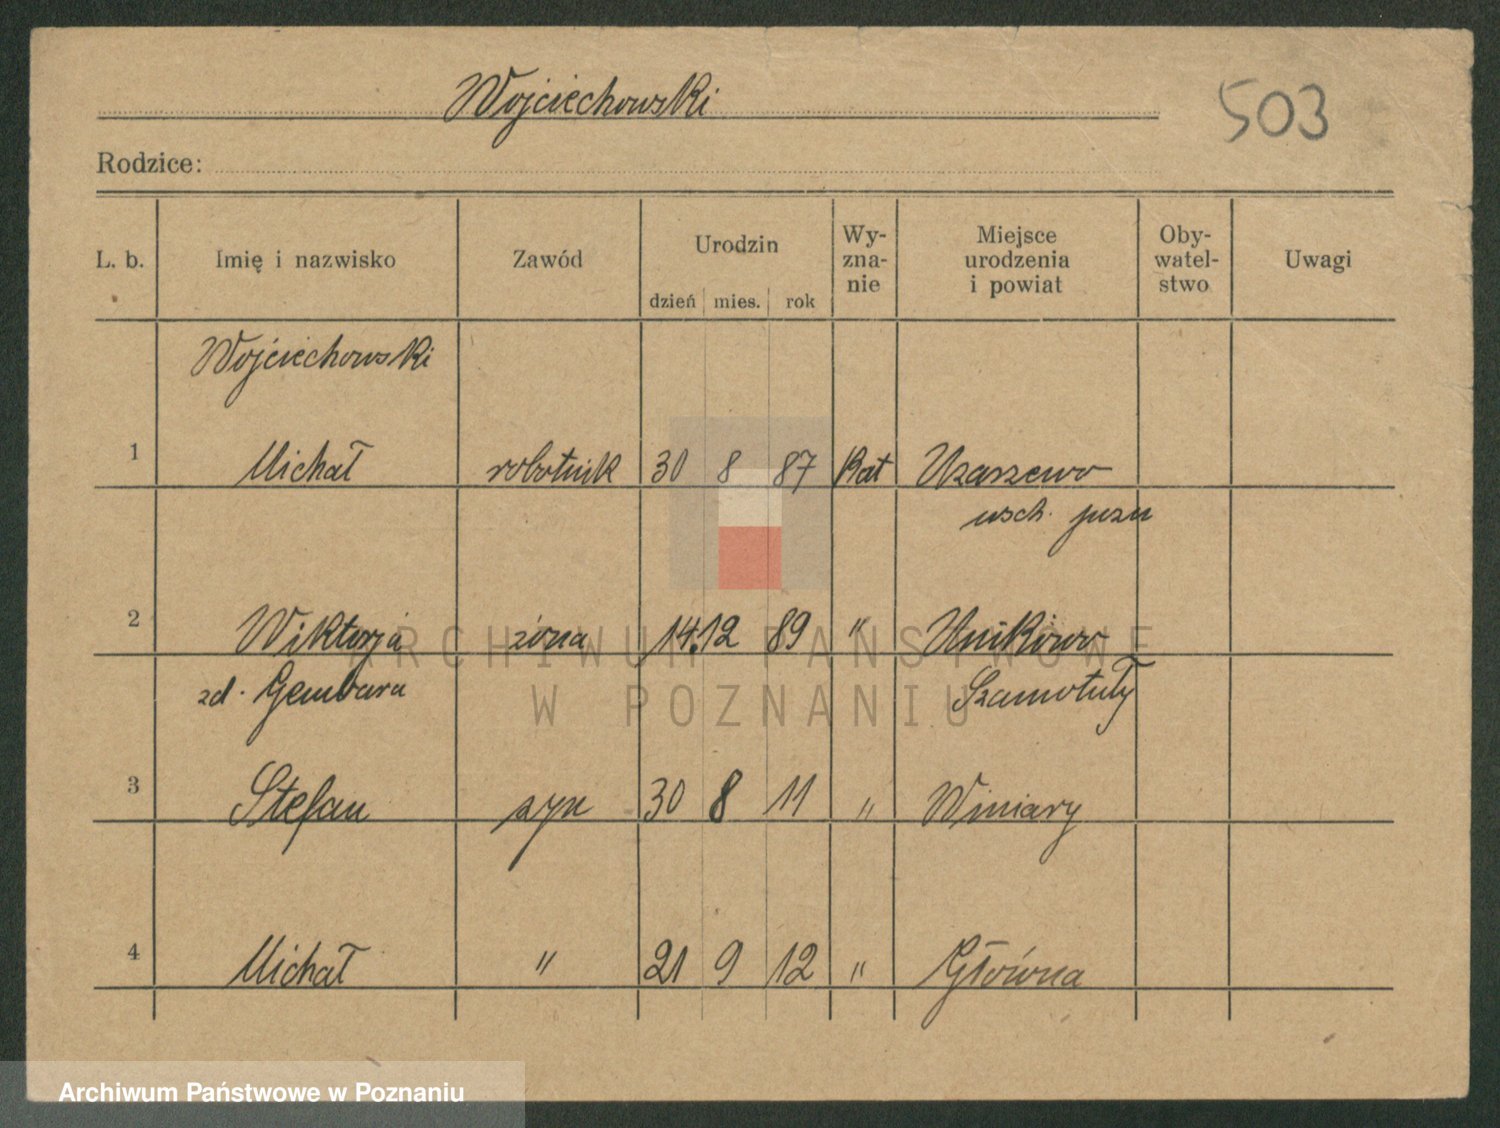 Wojciechowski
503
Rodzice:
L. b. Imię i nazwisko Zawód Urodzin dzień mies. rok Wy-zna-nie Miejsce urodzenia i powiat Oby-watel-stwo Uwagi
Wojciechowski
1 Michał robotnik 30 8 87 Kat
wsch.
2 Wiktorja żona 14.12 89 "
zd. Gembara Szamotuły
3 Stefan syn 30 8 11 " Winiary
4 Michał " 21 9 12 " Główna
ARCHIWUM PAŃSTWOWE
W POZNANIU
Archiwum Państwowe w Poznaniu